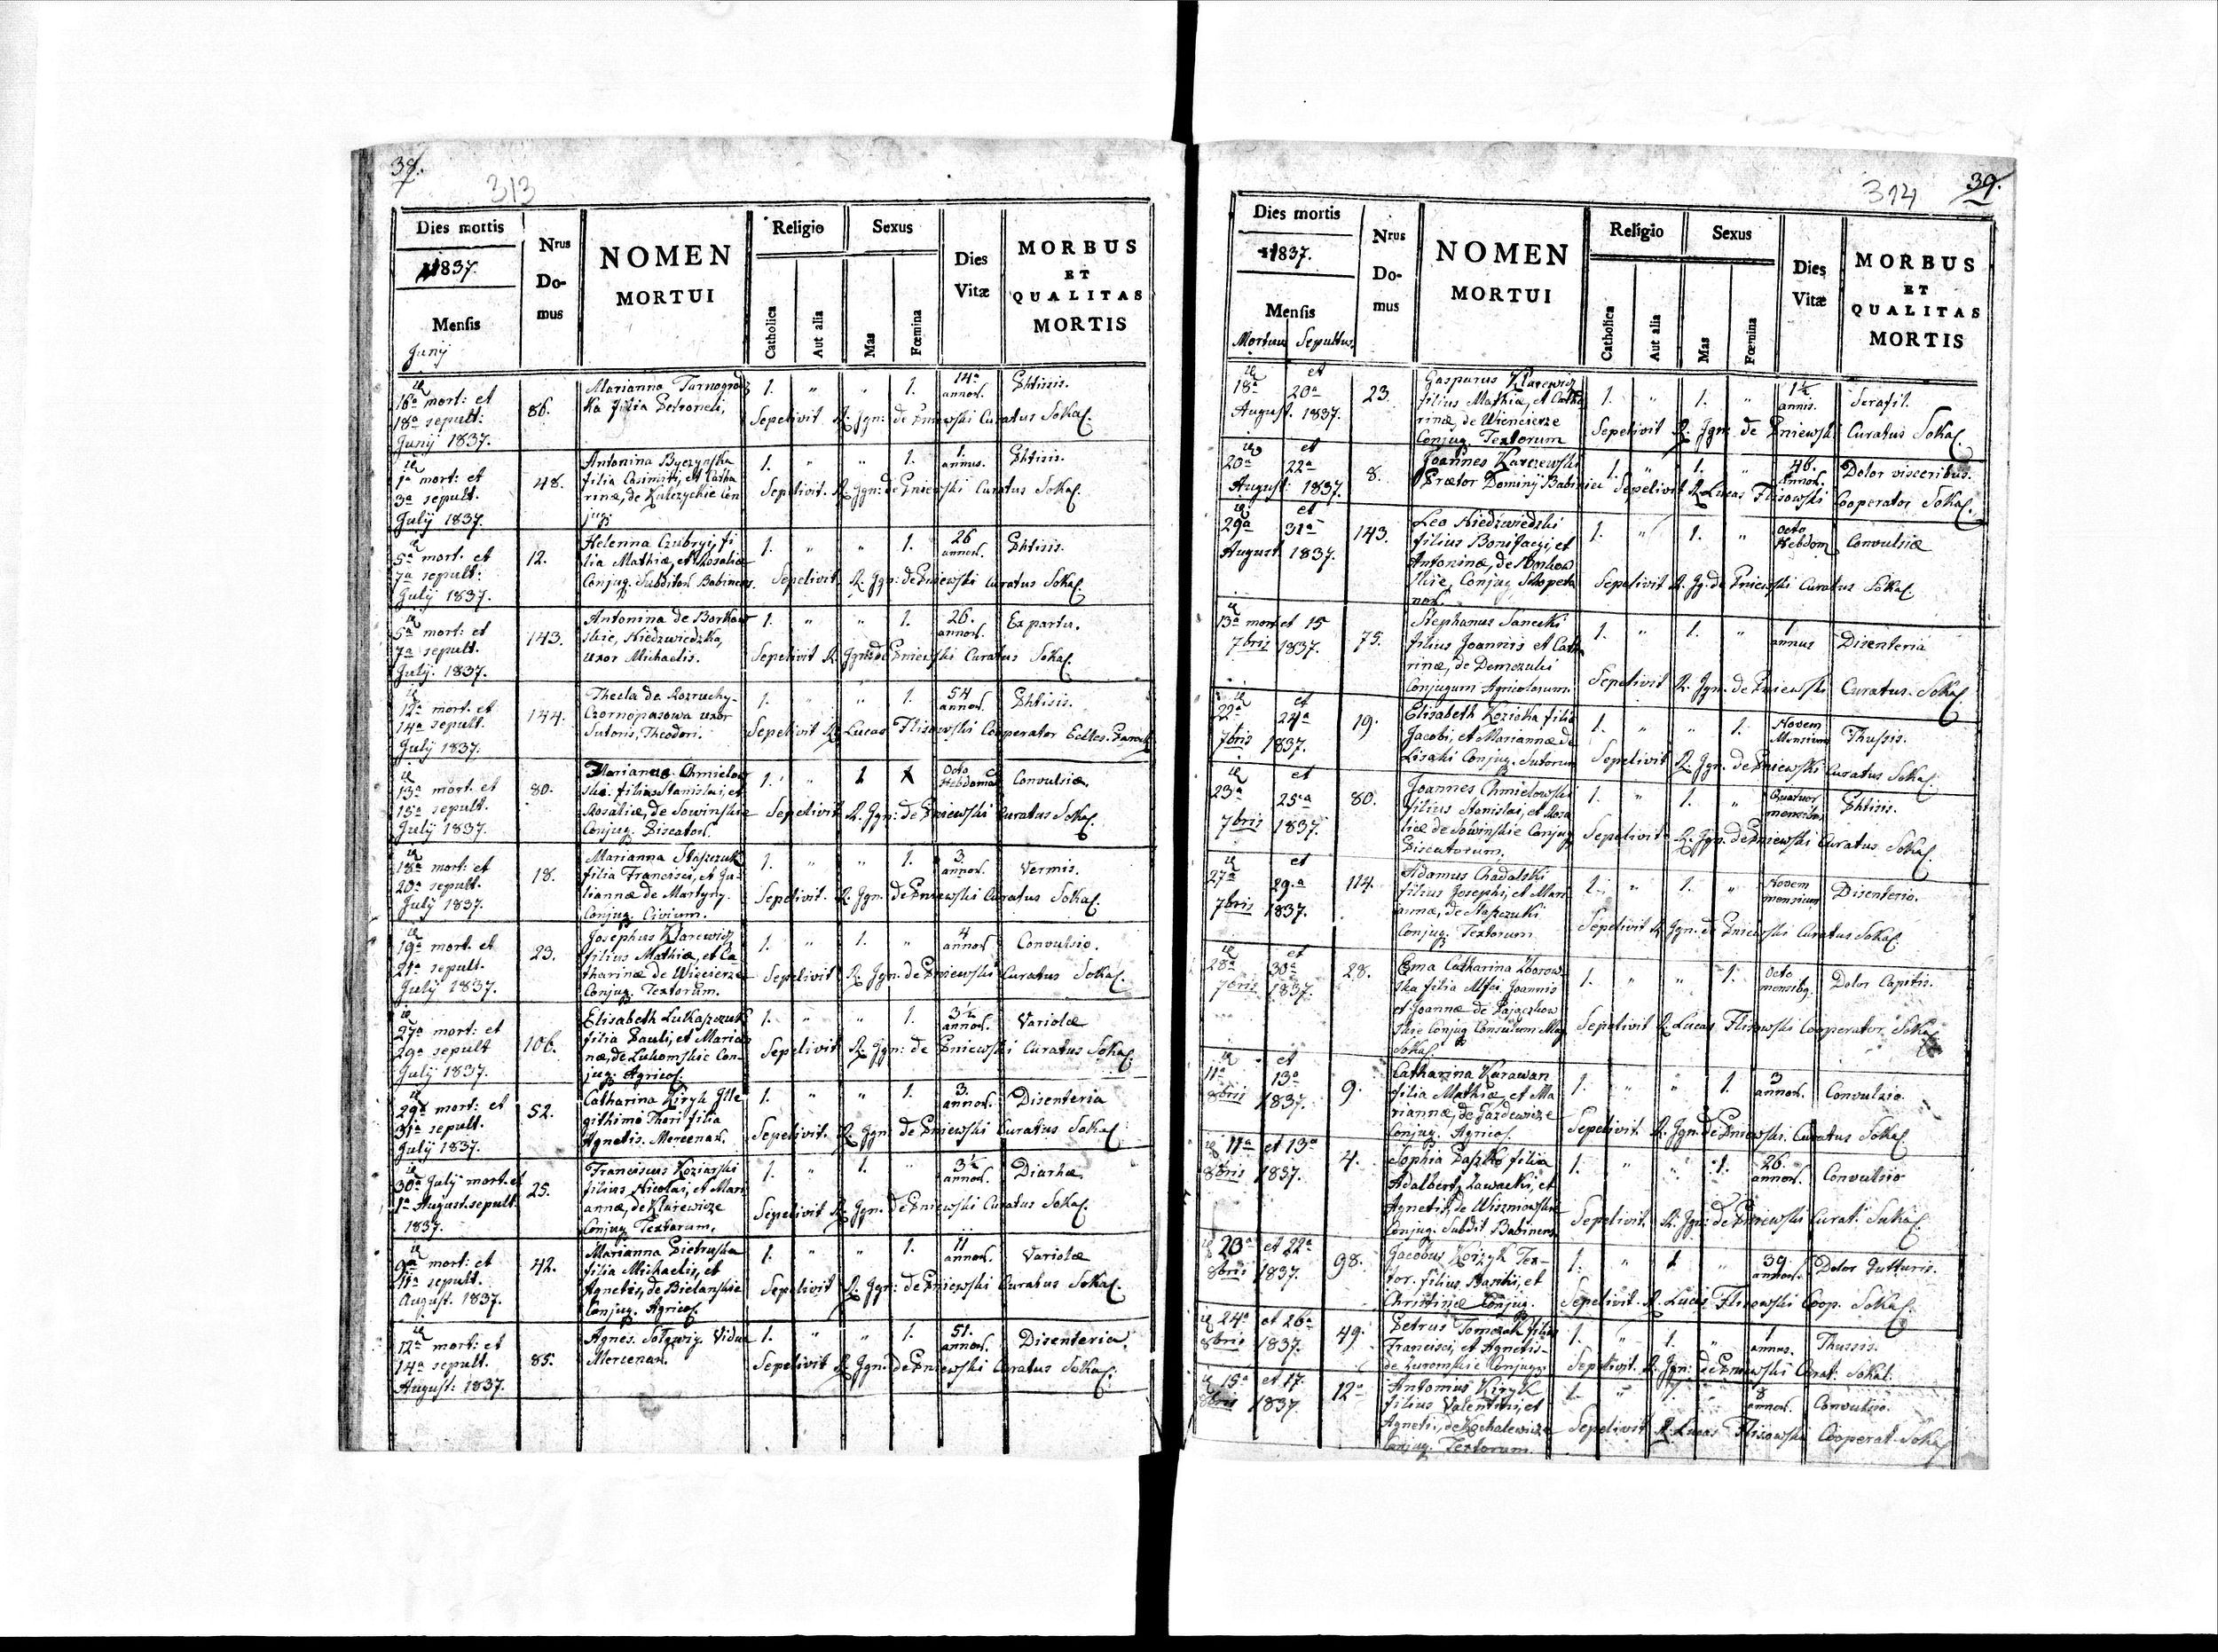 38.
313
Dies mortis
1837.
Mensis
Junij
Nrus
Do-
mus
NOMEN
MORTUI
Religio
Catholica
Aut alia
Sexus
Mas
Fœmina
Dies
Vitæ
MORBUS
ET
QUALITAS
MORTIS
16a mort: et
18a sepult:
Junij 1837.
86.
Marianna Turnogrodz
ka filia Petroneli,
1. " " 1.
14a
annor.
Phtisis.
Sepelivit R. Jgn: de Pniewski Curatus Sokal.
1a mort: et
3a sepult.
July 1837.
48.
Antonina Byczynska
filia Casimiri, et Catha
rinæ, de Kulczyckie Con
jug:
1. " " 1.
1.
annus.
Phtisis.
Sepelivit. R. Jgn: de Pniewski Curatus Sokal.
5a mort. et
7a sepult:
July 1837.
12.
Helenna Czubryj, fi
lia Mathiæ, et Rosaliæ
Conjug. Subditor Babinecs.
1. " " 1.
26
annor.
Phtisis.
Sepelivit R. Jgn: de Pniewski Curatus Sokal.
5a mort: et
7a sepult.
July. 1837.
143.
Antonina de Borkow
skie, Niedzwiedzka,
uxor Michaelis.
1. " " 1.
26.
annor.
Ex partu.
Sepelivit R. Jgn: de Pniewski Curatus Sokal.
12a mort. et
14a sepult.
July 1837.
144.
Thecla de Rozruchy-
Czornopasowa uxor
Sutoris, Theodori.
1. " " 1.
54
annor.
Phtisis.
Sepelivit R. Lucas Flisowski Cooperator Eccles. Paroch
13a mort. et
15a sepult.
July 1837.
80.
Marianus Chmielow
ski filius Stanislai, et
Rosaliæ, de Sowinskie
Conjug. Piscator.
1. " 1
Octo
Hebdomad
Convulsiæ.
Sepelivit R. Jgn: de Pniewski Curatus Sokal.
18a mort: et
20a sepult.
July 1837.
18.
Marianna Staszczuk
filia Francisci, et Ju-
liannæ de Martyny.
Conjug. Civium.
1. " " 1.
3.
annor.
Vermis.
Sepelivit. R. Jgn. de Pniewski Curatus Sokal.
19a mort. et
21a sepult.
July 1837.
23.
Josephus Klarewicz
filius Mathiæ, et Ca-
tharinæ de Wiecierze
Conjug. Textorum.
1. " 1. "
4
annor
Convulsio.
Sepelivit R. Jgn. de Pniewski Curatus Sokal.
27a mort: et
29a sepult
July 1837.
106.
Elisabeth Lukaszczuk
filia Pauli, et Marian
næ, de Lukomskie Con-
jug: Agricol.
1. " " 1.
3½
annor.
Variolæ
Sepelivit R. Jgn: de Pniewski Curatus Sokal.
29a mort: et
31a sepult.
July 1837.
52.
Catharina Kiryk Jlle
githimi Thori filia
Agnetis. Mercenar.
1. " " 1.
3.
annor.
Disenteria
Sepelivit. R. Jgn. de Pniewski Curatus Sokal
30a July mort. et
1a August. sepult.
1837.
25.
Franciscus Koziarski
filius Nicolai, et Mari
annæ, de Klarewicze
Conjug. Textorum.
1. " 1. "
3½
annor.
Diarhæ
Sepelivit R. Jgn. de Pniewski Curatus Sokal.
9a mort: et
11a sepult.
August. 1837.
42.
Marianna Pietruska
filia Michaelis, et
Agnetis, de Bielanskie
Conjug. Agricol.
1. " " 1.
11
annor.
Variolæ
Sepelivit R. Jgn: de Pniewski Curatus Sokal.
12a mort: et
14a sepult.
August: 1837.
85.
Agnes. Solewiz. Vidua
Mercenar.
1. " " 1.
51.
annor.
Disenteria.
Sepelivit R. Jgn. de Pniewski Curatus Sokal.
314
39.
Dies mortis
1837.
Mensis
Mortuus Sepultus
Nrus
Do-
mus
NOMEN
MORTUI
Religio
Catholica
Aut alia
Sexus
Mas
Fœmina
Dies
Vitæ
MORBUS
ET
QUALITAS
MORTIS
et
18a 20a
August. 1837.
23.
Gasparus Klarewicz
filius Mathiæ, et Catha
rinæ, de Wiencierze
Conjug. Textorum
1. " 1. "
1½
annis.
Serafil.
Sepelivit R. Jgn: de Pniewski Curatus Sokal.
et
20a 22a
August: 1837.
8.
Joannes Karczewski
Prætor Dominij Babiniec
1. " 1. "
48.
annor.
Dolor visceribus.
Sepelivit R. Lucas Flisowski Cooperator Sokal.
et
29a 31a
August 1837.
143.
Leo Niedźwiedzki
filius Bonifaczi, et
Antoninæ, de Borkow
skie, Conjug Skopeta
nor.
1. " 1. "
Octo
Hebdom
Convulsiæ
Sepelivit R. Jg. de Pniewski Curatus Sokal.
13a mort et 15
7bris 1837.
75.
Stephanus Sanecki
filius Joannis et Catha
rinæ, de Demczuki
Conjugum Agricolorum.
1. " 1. "
1
annus
Disenteria
Sepelivit R. Jgn. de Pniewski Curatus Sokal
et
22a 24a
7bris 1837.
19.
Elisabeth Kozioka filia
Jacobi, et Mariannæ de
Lisaki Conjug. Sutorum
1. " " 1.
Novem
Mensium
Thussis.
Sepelivit R. Jgn. de Pniewski Curatus Sokal.
et
23a 25a
7bris 1837.
80.
Joannes Chmielowski
filius Stanislai, et Rosa
liæ de Sowinskie Conjug
Piscatorum.
1. " 1. "
Quatuor
mensibus
Phtisis.
Sepelivit R. Jgn. de Pniewski Curatus Sokal.
et
27a 29.a
7bris 1837.
114.
Adamus Chadalski
filius Josephi, et Mari
annæ, de Staszczuki
Conjug. Textorum
1. " 1. "
Novem
mensium
Disenterio.
Sepelivit R Jgn. de Pniewski Curatus Sokal.
et
28a 30a
7bris 1837.
28.
Ema Catharina Zborow
ska filia Mfci Joannis
et Joannæ de Pajączkow
skie Conjug Consulum Mag
Sokal.
1. " " 1.
Octo
mensibq.
Dolor Capitis.
Sepelivit R. Lucas Flisowski Cooperator Sokal
et
11a 13a
8bris 1837.
9.
Catharina Karawan
filia Mathiæ, et Ma
riannæ, de Gazdewicze
Conjug. Agricol.
1. " " 1.
3
annor.
Convulsio.
Sepelivit. R. Jgn. de Pniewski. Curatus Sokal.
11a et 13a
8bris 1837.
4.
Sophia Paszko filia
Adalberti Zawacki, et
Agnetis, de Wiszniowskie
Conjug. Subdit Babinecs
1. " " 1.
26.
annor.
Convulsio
Sepelivit. R. Jgn: de Pniewski Curat. Sokal.
20a et 22a
8bris 1837.
98.
Jacobus Korzyk Tex-
tor. filius Basilii, et
Christinæ Conjug.
1. " 1 "
39
annor.
Dolor Gutturis.
Sepelivit. R. Lucas Flisowski Coop. Sokal.
24a et 26a
8bris 1837.
49.
Petrus Tomczak filius
Francisci, et Agnetis-
de Zuromskie Conjug
1. " 1. "
1
annus.
Thussis.
Sepelivit. R. Jgn: de Pniewski Curat: Sokal.
15a et 17.
8bris 1837
12a
Antonius Kiryk
filius Valentini, et
Agneti, de Kochalewicze
Conjug. Textorum
1. " 1. "
8
annor.
Convulsio.
Sepelivit R. Lucas Flisowski Cooperat. Sokal